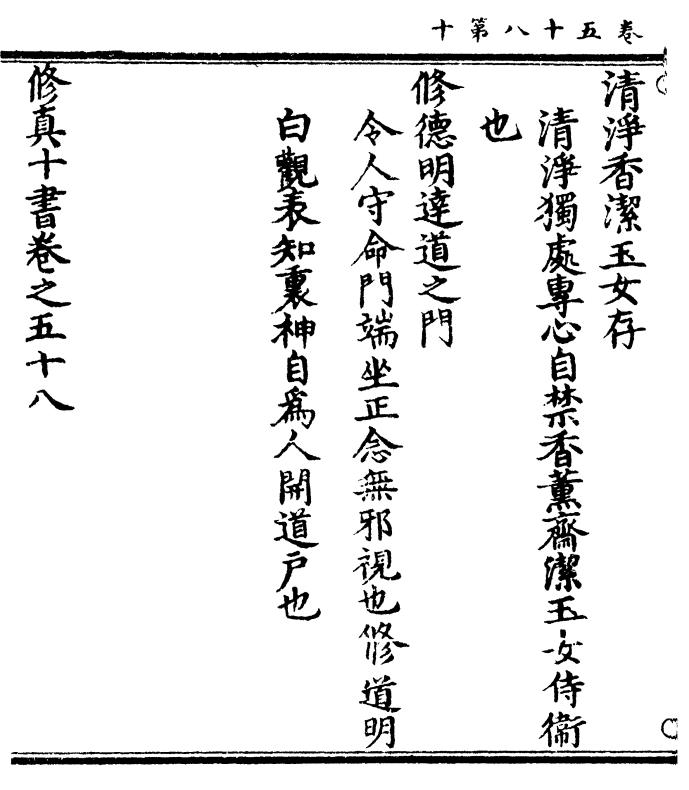 卷五十八第十
清淨香潔玉女存
清淨獨處專心自禁香薰齋潔玉女侍衛
也
修德明達道之門
令人守命門端坐正念無邪視也修道明
白觀表知裏神自爲人開道戶也
修真十書卷之五十八